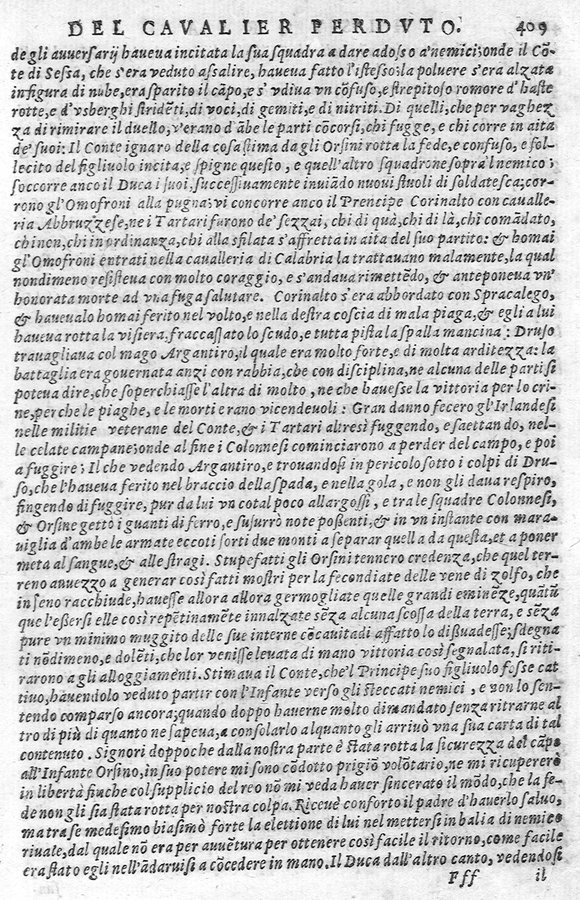 DEL CAVALIER PERDVTO. 409
de gli auuersarij haueua incitata la sua squadra a dare adosso a'nemici; onde il Cõ-
te di Sessa, che s'era veduto assalire, haueua fatto l'istesso: la poluere s'era alzata
in figura di nube, era sparito il cãpo, e s'vdiua vn cõfuso, e strepitoso romore d'haste
rotte, e d'vsberghi stridẽti, di voci, di gemiti, e di nitriti. Di quelli, che per vaghez-
za di rimirare il duello, v'erano d'ãbe le parti cõcorsi, chi fugge, e chi corre in aita
de'suoi: Il Conte ignaro della cosa stima da gli Orsini rotta la fede, e confuso, e sol-
lecito del figliuolo incita, e spigne questo, e quell'altro squadrone sopra'l nemico;
soccorre anco il Duca i suoi successiuamente inuiãdo nuoui stuoli di soldatesca; cor-
rono gl'Omofroni alla pugna: vi concorre anco il Prencipe Corinalto con caualle-
ria Abbruzzese, ne i Tartari furono de'sezzai, chi di quà, chi di là, chi comãdato,
chi non, chi in ordinanza, chi alla sfilata s'affretta in aita del suo partito: & homai
gl'Omofroni entrati nella caualleria di Calabria la trattauano malamente, la qual
nondimeno resisteua con molto coraggio, e s'andaua rimettẽdo, & anteponeua vn'
honorata morte ad vna fuga salutare. Corinalto s'era abbordato con Spracalego,
& haueualo homai ferito nel volto, e nella destra coscia di mala piaga, & egli a lui
haueua rotta la visiera, fraccassato lo scudo, e tutta pista la spalla mancina: Druso
trauagliaua col mago Argantiro, il quale era molto forte, e di molta arditezza: la
battaglia era gouernata anzi con rabbia, che con disciplina, ne alcuna delle parti si
poteua dire, che soperchiasse l'altra di molto, ne che hauesse la vittoria per lo cri-
ne, perche le piaghe, e le morti erano vicendeuoli: Gran danno fecero gl'Irlandesi
nelle militie veterane del Conte, & i Tartari altresì fuggendo, e saettando, nel-
le celate campane: onde al fine i Colonnesi cominciarono a perder del campo, e poi
a fuggire; Il che vedendo Argantiro, e trouandosi in pericolo sotto i colpi di Dru-
so, che l'haueua ferito nel braccio della spada, e nella gola, e non gli daua respiro,
fingendo di fuggire, pur da lui vn cotal poco allargossi, e tra le squadre Colonnesi,
& Orsine gettò i guanti di ferro, e susurrò note possenti; & in vn instante con mara-
uiglia d'ambe le armate eccoti sorti due monti a separar quella da questa, et a poner
meta al sangue, & alle stragi. Stupefatti gli Orsini tennero credenza, che quel ter-
reno auuezzo a generar così fatti mostri per la fecondiate delle vene di zolfo, che
in seno racchiude, hauesse allora allora germogliate quelle grandi eminẽze, quãtũ
que l'essersi elle così repẽtinamẽte innalzate sẽza alcuna scossa della terra, e sẽza
pure vn minimo muggito delle sue interne cõcauitadi affatto lo dissuadesse; sdegna
ti nõdimeno, e dolẽti, che lor venisse leuata di mano vittoria così segnalata, si riti-
rarono a gli alloggiamẽti. Stimaua il Conte, che'l Principe suo figliuolo fosse cat
tiuo, hauendolo veduto partir con l'Infante verso gli steccati nemici, e non lo sen-
tendo comparso ancora; quando doppo hauerne molto dimandato senza ritrarne al
tro di più di quanto ne sapeua, a consolarlo alquanto gli arriuò vna sua carta di tal
contenuto. Signori doppoche dalla nostra parte è stata rotta la sicurezza del cãpo
all'Infante Orsino, in suo potere mi sono cõdotto prigiõ volõtario, ne mi ricupererò
in libertà finche col supplicio del reo nõ mi veda hauer sincerato il mõdo, che la fe-
de non gli sia stata rotta per nostra colpa. Riceuè conforto il padre d'hauerlo saluo,
ma tra se medesimo biasimò forte la elettione di lui nel mettersi in balia di nemico
riuale, dal quale nõ era per auuẽtura per ottenere così facile il ritorno, come facile
era stato egli nell'ãdaruisi a cõcedere in mano. Il Duca dall'altro canto, vedendosi
Fff il